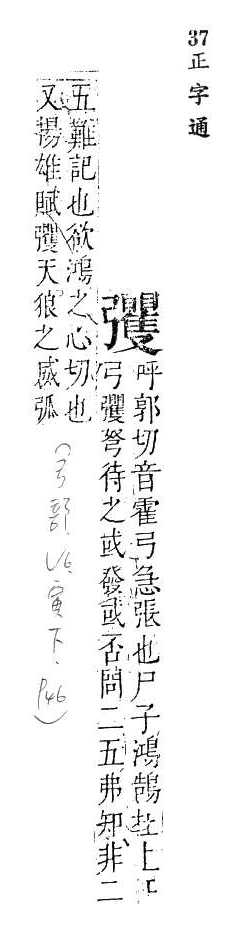 37正字通
彏
呼郭切音霍弓急張也尸子鴻鵠在上
弓彏弩待之或發或否問二五弗知非二
五難記也欲鴻之心切也
又揚雄賦彏天狼之威弧
(弓部、V6、寅下、P46)